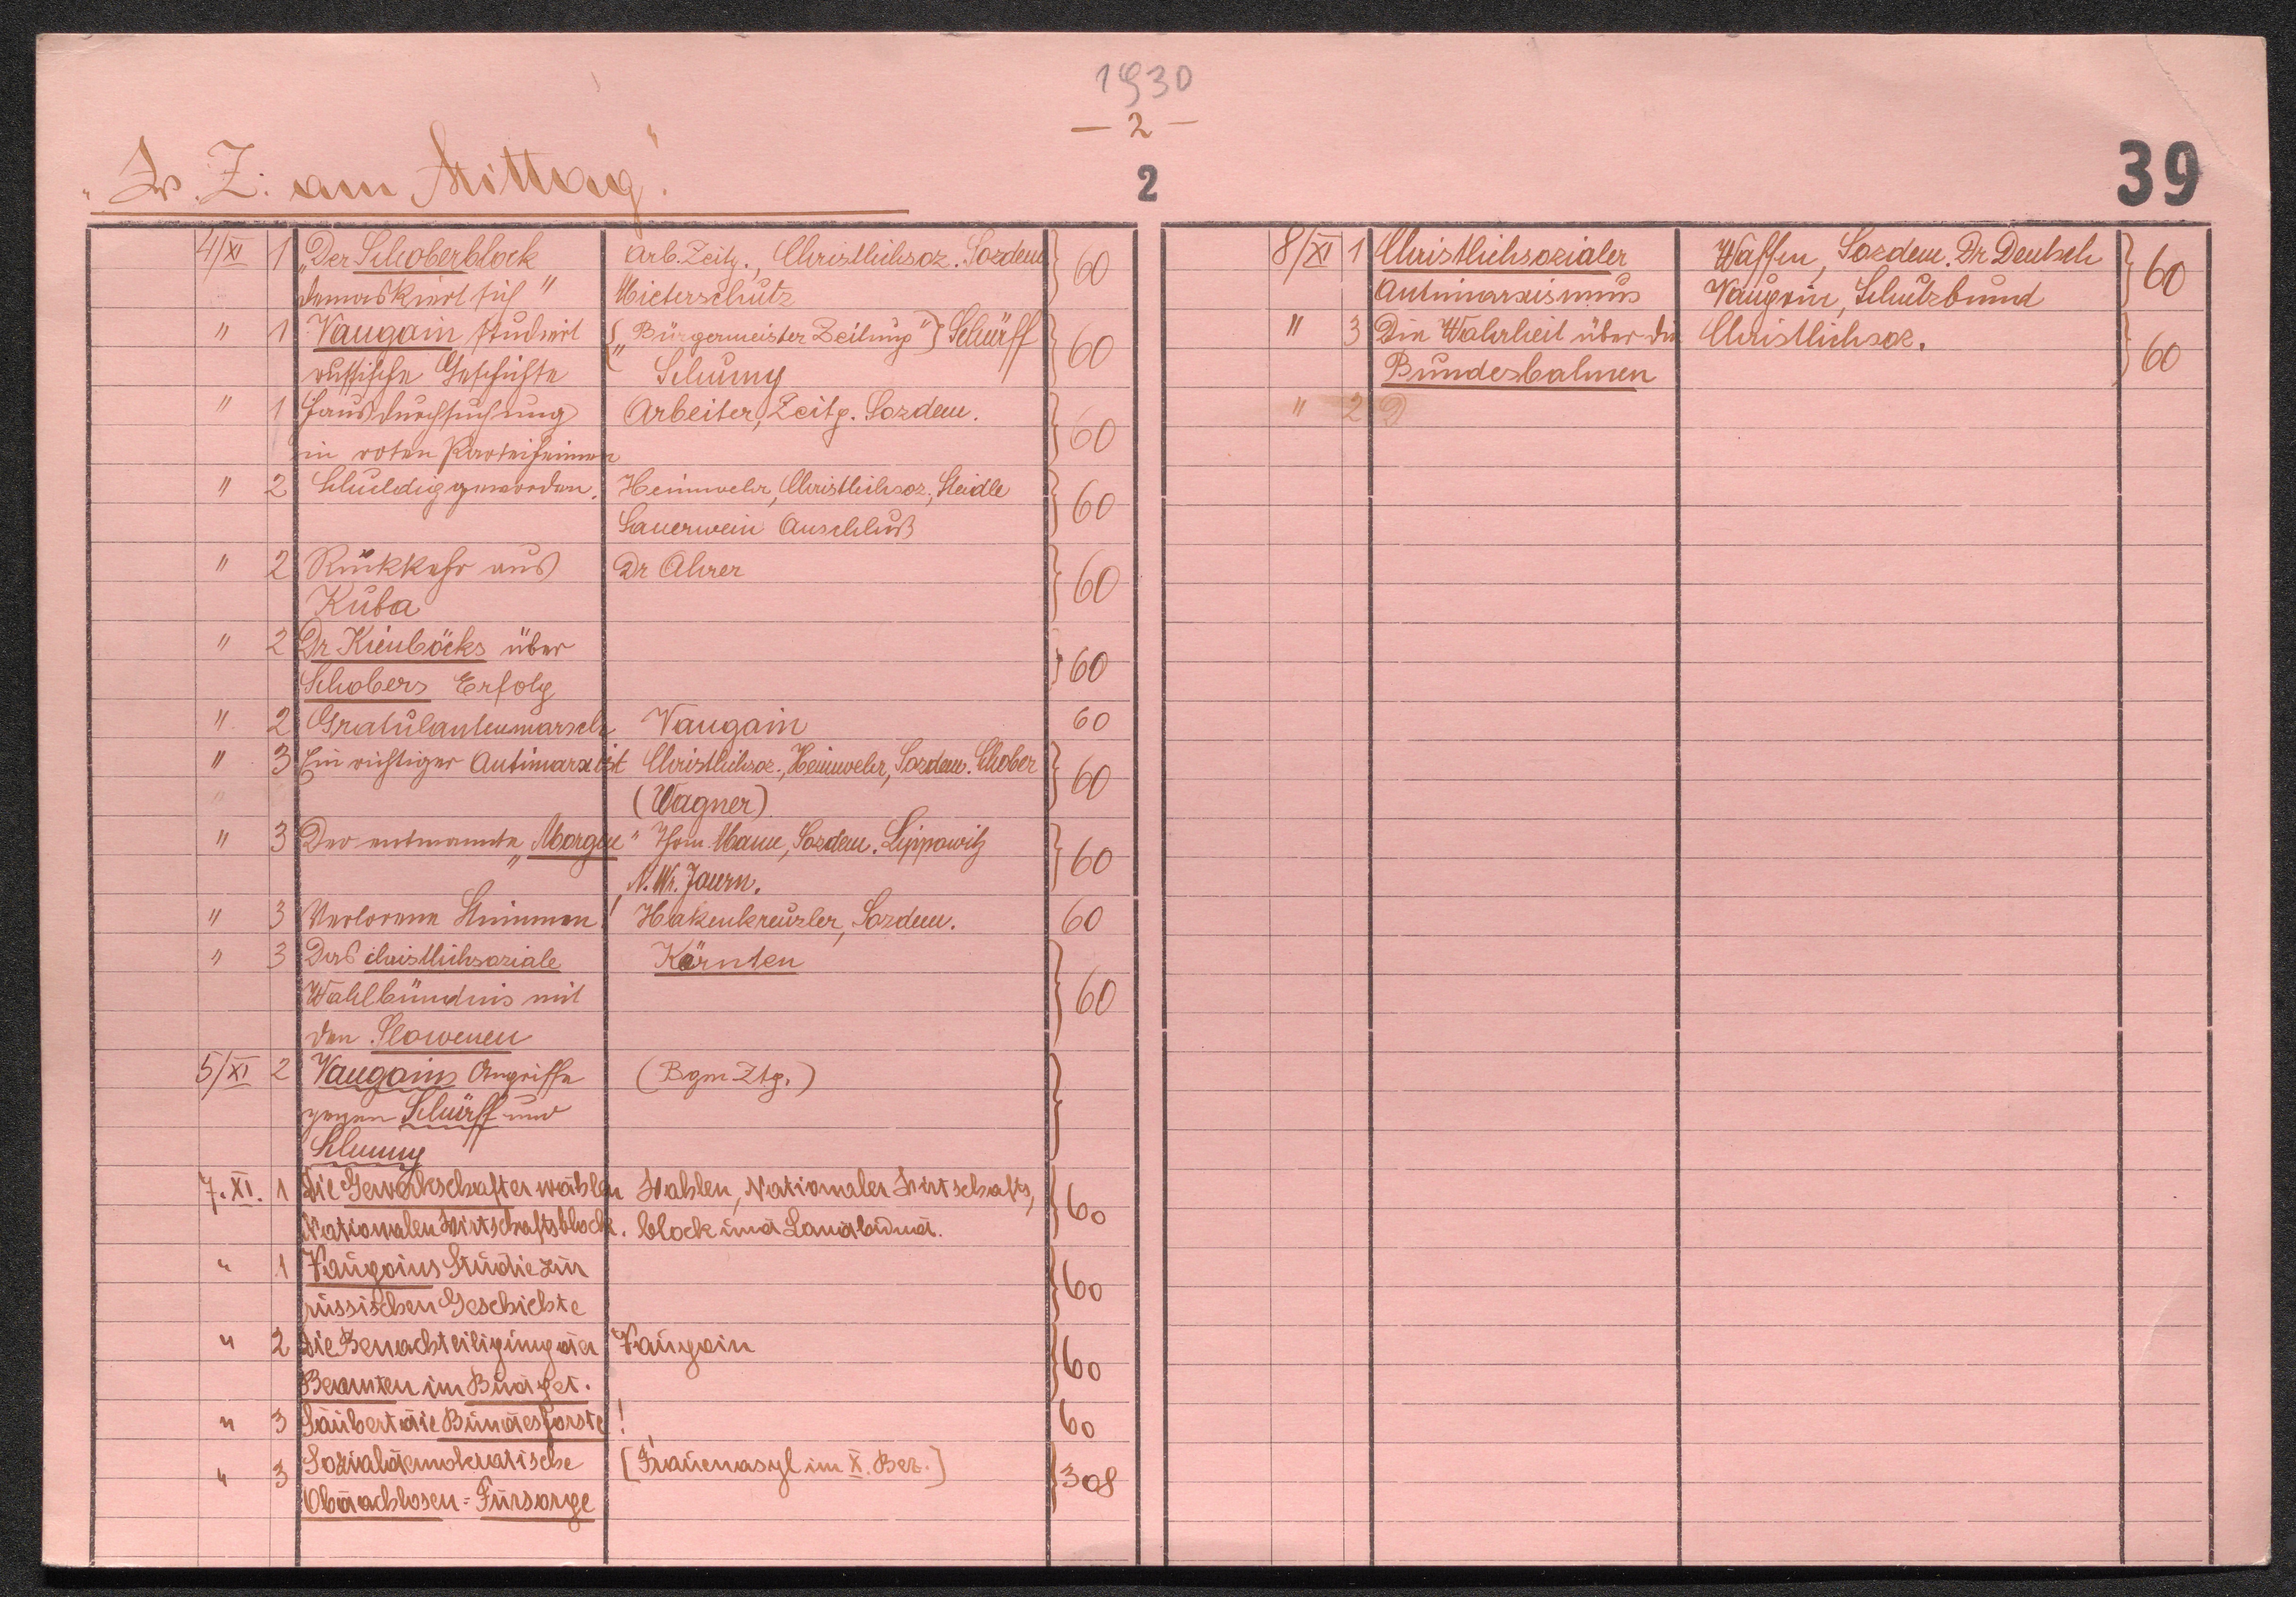 1930
— 2 —
„W. Z. am Mittag“.
2
39
4/XI 1 „Der Schoberblock Arb. Zeitg., Christlichsoz. Sozdem 60
demaskiert sich“ Mieterschutz
" 1 Vaugoin studiert [„Bürgermeister Zeitung“] Schürff 60
russische Geschichte Schumy
" 1 Hausdurchsuchung Arbeiter, Zeitg. Sozdem. 60
in roten Parteiheimen
" 2 Schuldig geworden. Heimwehr, Christlichsoz., Steidle 60
Sauerwein Anschluß
" 2 Rückkehr aus Dr Ahrer 60
Kuba
" 2 Dr Kienböcks über 60
Schobers Erfolg
" 2 Gratulantenmarsch Vaugoin 60
" 3 Ein richtiger Antimarxist Christlichsoz., Heimwehr, Sozdem. Schober 60
(Wagner)
" 3 Der entmannte „Morgen“ Thom. Mann, Sozdem. Lippowitz 60
N. Wr. Journ.
" 3 Verlorene Stimmen! Hakenkreuzler, Sozdem. 60
" 3 Das christlichsoziale Kärnten 60
Wahlbündnis mit
den Slowenen
5/XI 2 Vaugoins Angriffe (Bgm Ztg.)
gegen Schürff und
Schumy
7. XI. 1 Die Gewerkschafter wählen Wahlen, Nationaler Wirtschafts, 60
Nationalen Wirtschaftsblock. block und Landbund.
" 1 Vaugoins Studie zur 60
russischen Geschichte
" 2 Die Benachteiligung der Vaugoin 60
Beamten im Budget.
" 3 Säubert die Bundesforste! 60
" 3 Sozialdemokratische [Frauenasyl im X. Bez.] 308
Obdachlosen=Fürsorge
8/XI 1 Christlichsozialer Waffen, Sozdem. Dr Deutsch 60
Antimarxismus Vaugoin, Schutzbund
" 3 Die Wahrheit über die Christlichsoz. 60
Bundesbahnen
" 2 D